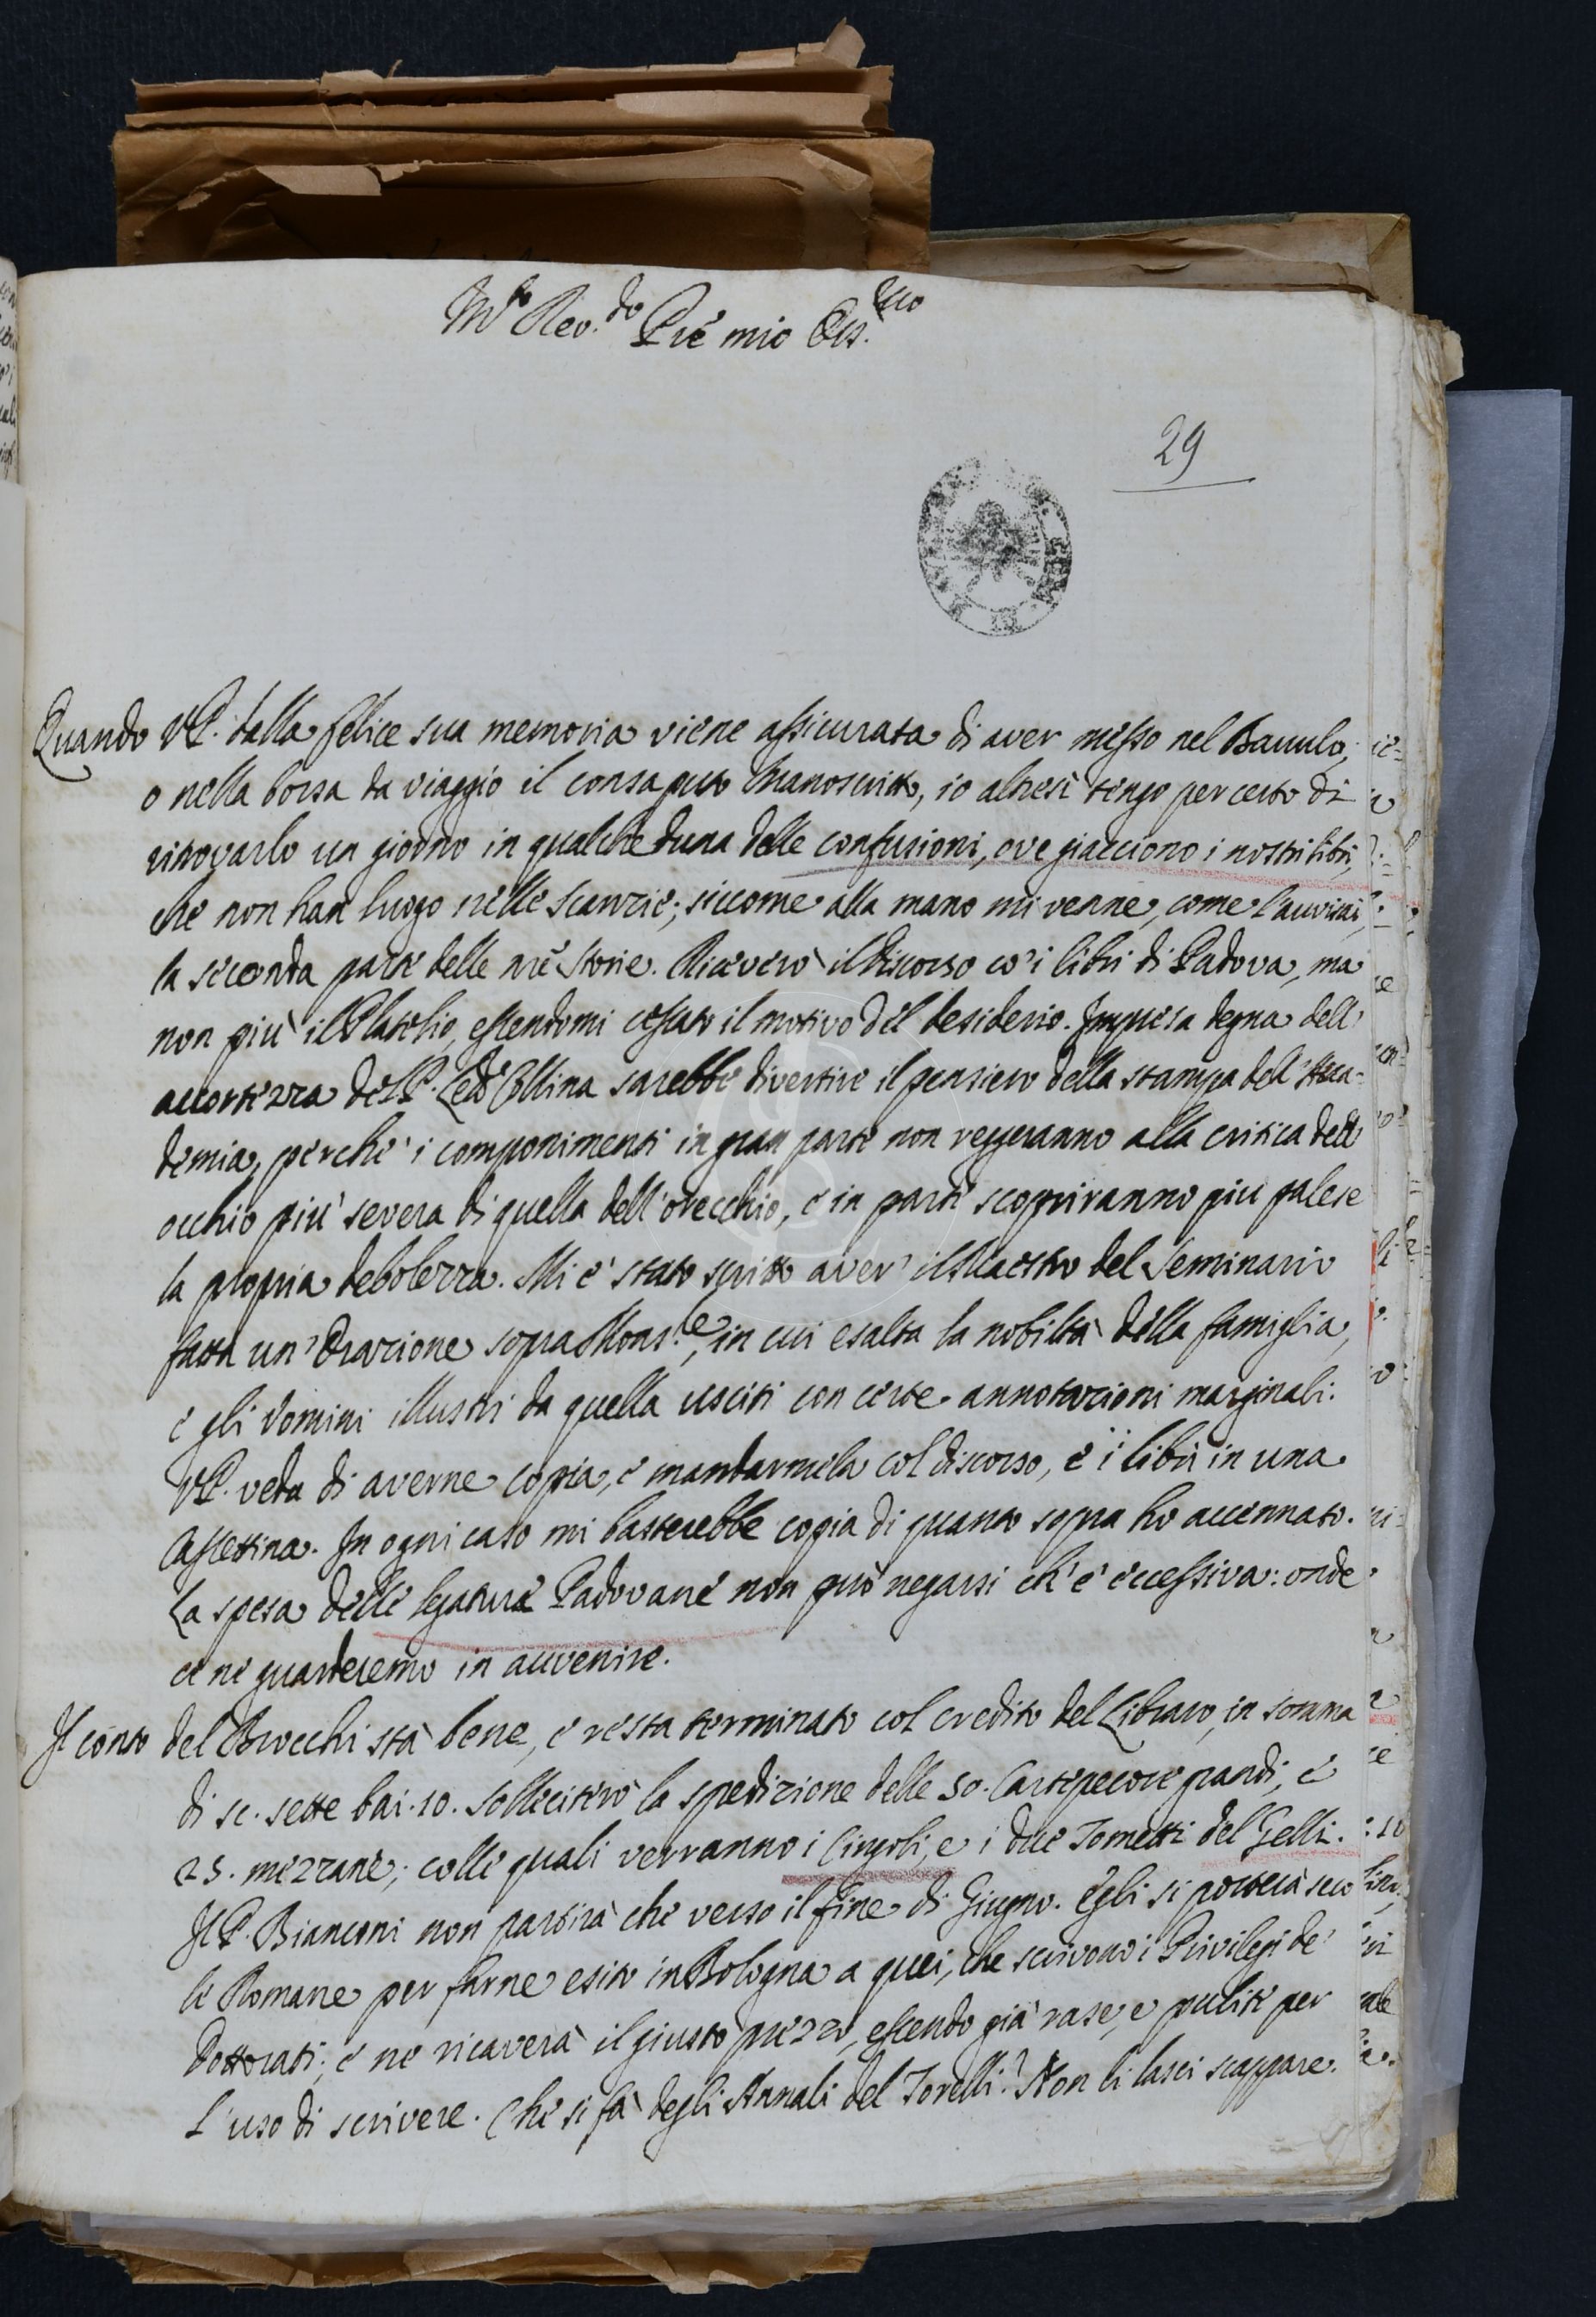 M.to Rev.do Pre mio Oss.mo
29
Quando V.P. dalla felice sua memoria viene assicurata di aver messo nel Bauulo,
o nella borsa da viaggio il consaputo Manoscritto, io altresì tengo per certo di
ritrovarlo un giorno in qualcheduna delle confusioni, ove giacciono i nostri libri,
che non han luogo nelle scanzie; siccome alla mano mi venne, come l'auvisai,
la seconda parte delle nrē storie. Riceverò il discorso co' i libri di Padova, ma
non più il, essendomi cessato il motivo del desiderio. Impresa degna dell'
accortezza del P. Led. Collina sarebbe divertire il pensiero della stampa dell'Acca-
demia, perche' i componimenti in gran parte non reggeranno alla critica dell'
occhio più severa di quella dell'orecchio, e in parte scopriranno più palese
la propria debolezza. Mi e' stato scritto aver' il Maestro del Seminario
fatta un' Orazione sopra Mons.re, in cui esalta la nobiltà della famiglia,
e gli Uomini illustri da quella usciti con certe annotazioni marginali.
V.P. veda di averne copia, e mandarmela col discorso, e i libri in una
Cassettina. In ogni caso mi basterebbe copia di quanto sopra ho accennato.
La spesa delle legature Padovane non può negarsi ch' e' eccessiva: onde
ce ne guarderemo in auvenire.
Il conto del Brocchi stà bene, e resta terminato col credito del Libraro, in somma
di sc. sette bai. 10. Solleciterò la spedizione delle 50. Cartepecore grandi, e
25. mezzane; colle quali verranno i Cingoli, e i due Tometti del Gelli.
Il P. Bianconi non partirà che verso il fine di Giugno. Egli si porterà seco
le Romane per farne esito in Bologna a quei, che scrivono i Privilegi de'
Dottorati; e ne ricaverà il giusto prezzo, essendo già rase, e pulite per
l'uso di scrivere. Che si fà degli Annali del Torelli? Non li lasci scappare.